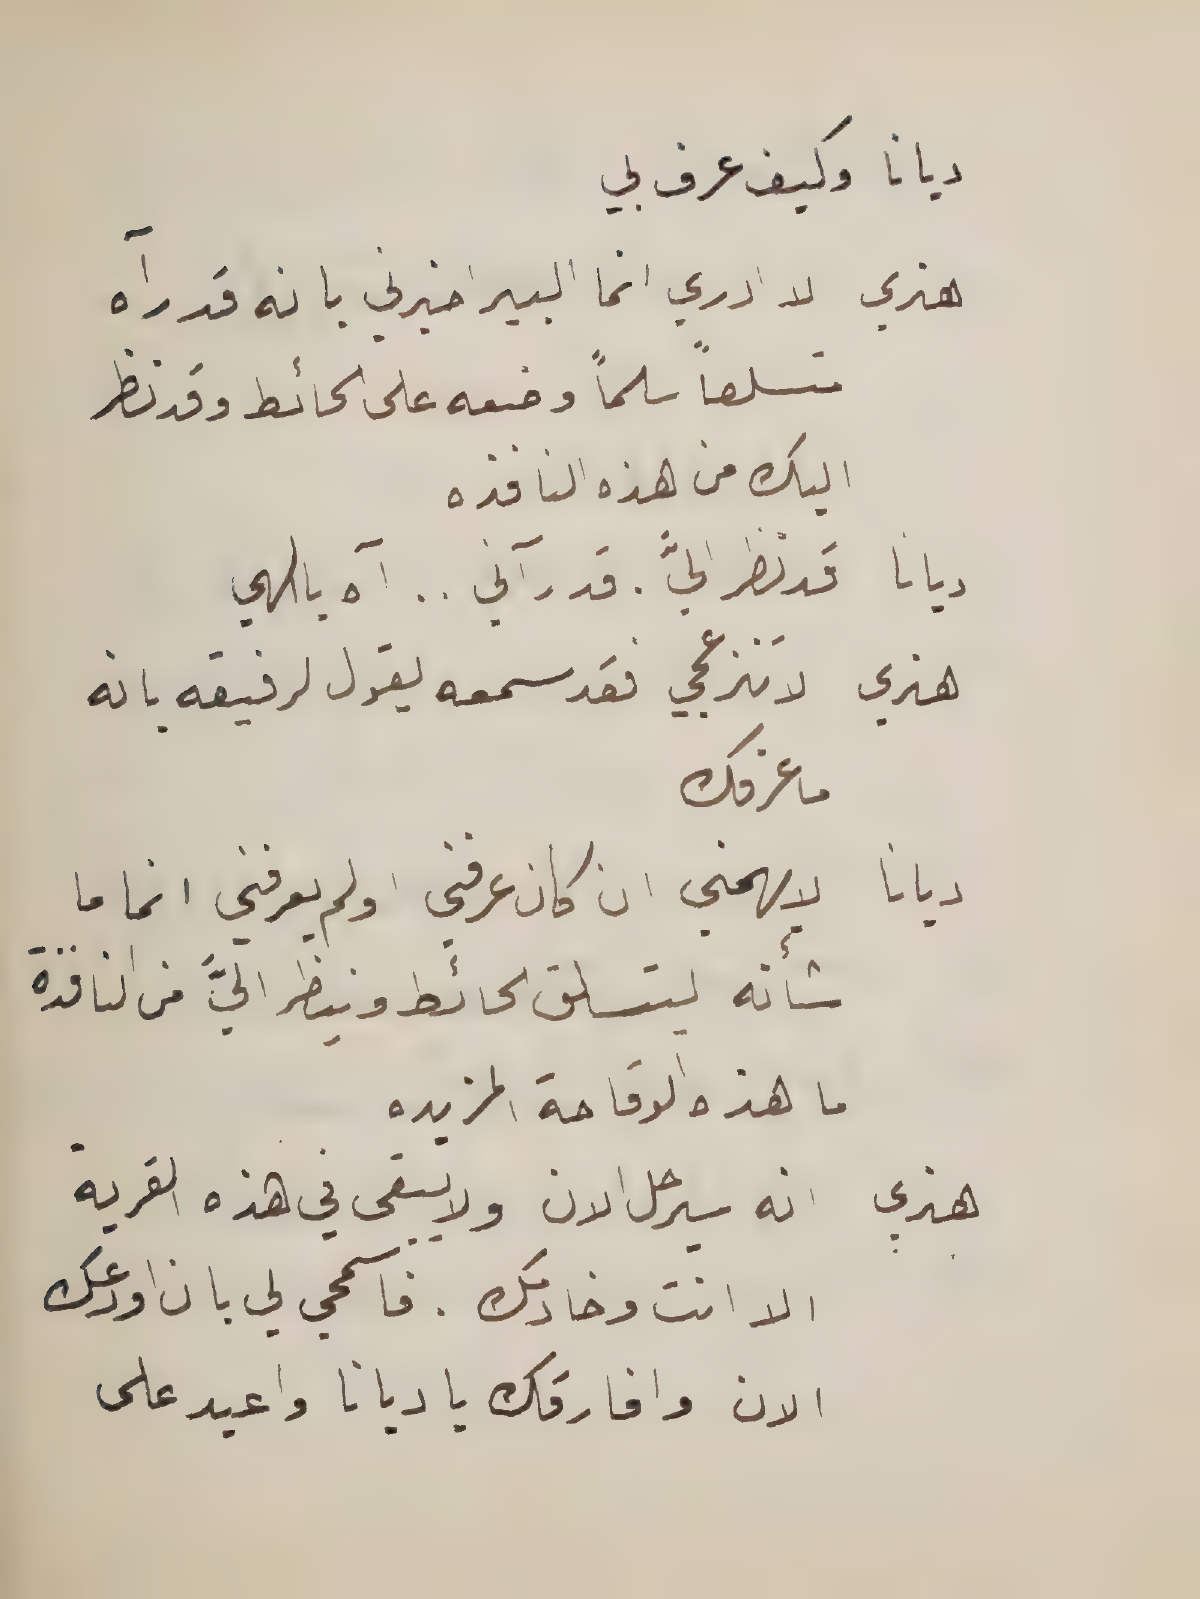 ديانا وكيف عرف بي
هنري لا ادري انما البير اخبرني بانه قد رآه
متسلقاً سلماً وضعه على الحائط وقد نظر
اليك من هذه النافذه
ديانا قد نظر اليَّ . قد رآني .. آه يا الهي
هنري لا تنزعجي فقد سمعه يقول لرفيقه بانه
ما عرفك
ديانا لا يهمني ان كان عرفني اولم يعرفني انما ما
شأنه ليتسلق الحائط وينظر اليَّ من النافذة
ما هذه الوقاحة المزيده
هنري انه سيرحل الان ولا يبقى في هذه القرية
الا انت وخادمك . فاسمحي لي بان اودعك
الان وافارقك يا ديانا واعيد على